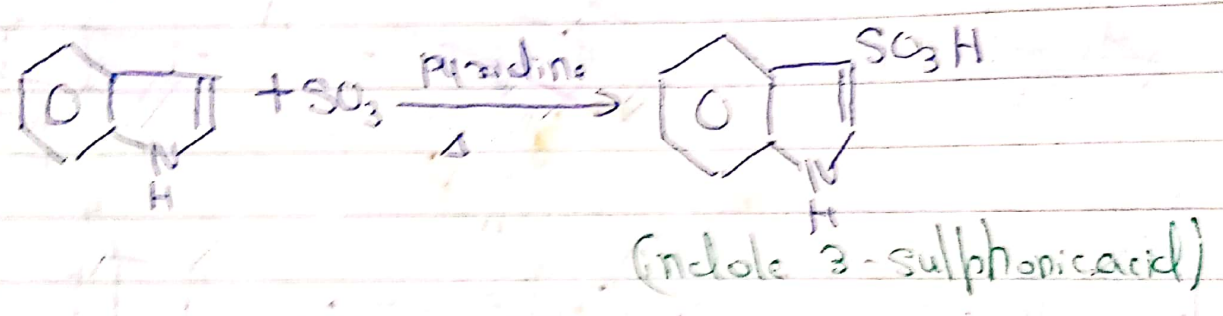 SO₃H
+ SO₃ pyridine
Δ
N
H
N
H
(indole 3-sulphonicacid)